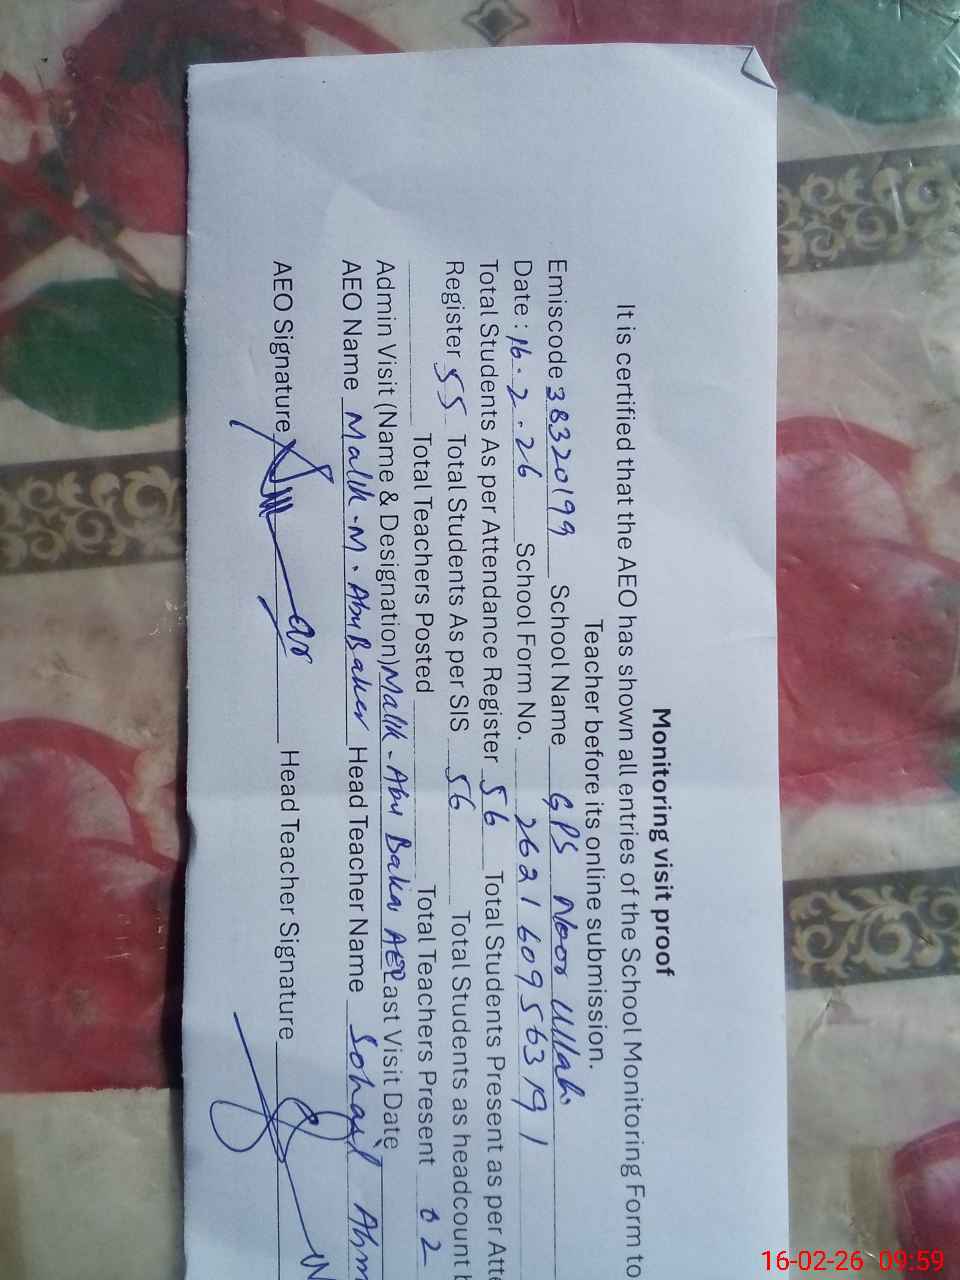 Monitoring visit proof
It is certified that the AEO has shown all entries of the School Monitoring Form to
Teacher before its online submission.
Emiscode 38320199 School Name GPS Noor Ullah
Date : 16.2.26 School Form No. 2621609563191
Total Students As per Attendance Register 56 Total Students Present as per Atte
Register 55 Total Students As per SIS 56 Total Students as headcount
Total Teachers Posted Total Teachers Present 02
Admin Visit (Name & Designation) Malik. Abu Bakar AEO Last Visit Date
AEO Name Malik. M. Abu Baker Head Teacher Name Sohail Ahm
AEO Signature Head Teacher Signature
16-02-26 09:59